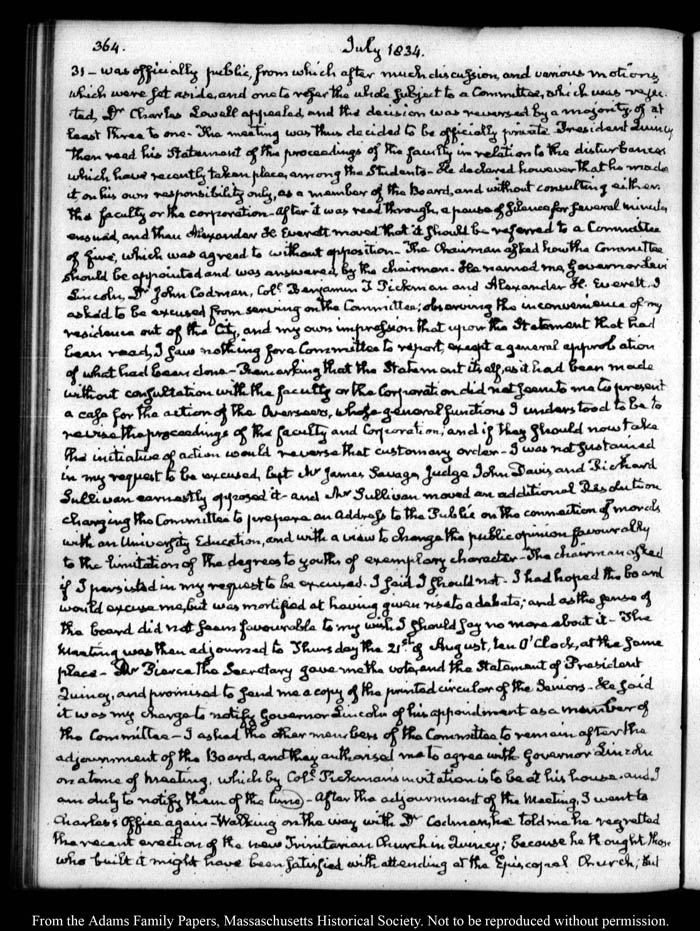 364.
July 1834.
31 – was officially public, from which after much discussion, and various motions,
which were set aside, and one to refer the whole subject to a Committee, which was rejec-
ted, Dr Charles Lowell appealed, and the decision was reversed by a majority of at
least three to one – The meeting was thus decided to be officially private. President Quincy
then read his Statement of the proceedings of the faculty in relation to the disturbances
which have recently taken place, among the Students – He declared however that he made
it on his own responsibility only, as a member of the Board, and without consulting either
the faculty or the corporation – After it was read through, a pause of silence for several minutes
ensued, and then Alexander H. Everett moved that it should be referred to a Committee
of five, which was agreed to without opposition. The Chairman asked how the Committee
should be appointed and was answered, by the chairman. He named me, Governor Levi
Lincoln, Dr John Codman, Col. Benjamin T Pickman and Alexander H. Everett. I
asked to be excused from serving on the Committee; observing the inconvenience of my
residence out of the City, and my own impression that upon the Statement that had
been read, I saw nothing for a Committee to report, except a general approbation
of what had been done – Remarking that the Statement itself, as it had been made
without consultation with the faculty or the Corporation did not seem to me to present
a case for the action of the Overseers, whose general functions I understood to be to
revise the proceedings of the faculty and Corporation; and if they should now take
the initiative of action would reverse that customary order – I was not sustained
in my request to be excused, but Mr James Savage, Judge John Davis, and Richard
Sullivan earnestly opposed it – and Mr Sullivan moved an additional Resolution
charging the Committee to prepare an Address to the Public on the connection of morals
with an University Education, and with a view to change the public opinion favourably
to the limitation of the degrees to youths of exemplary character – The chairman asked
if I persisted in my request to be excused. I said I should not. I had hoped the board
would excuse me, but was mortified at having given rise to a debate; and as the sense of
the board did not seem favourable to my wish I should say no more about it – The
Meeting was then adjourned to Thursday the 21st of August, ten O'Clock, at the same
place – Mr Pierce the Secretary gave me the vote, and the Statement of President
Quincy, and promised to send me a copy of the printed circular of the Seniors – He said
it was my charge to notify Governor Lincoln of his appointment as a member of
the Committee – I asked the other members of the Committee to remain after the
adjournment of the Board, and they authorised me to agree with Governor Lincoln
on a time of meeting, which by Col. Pickman's invitation is to be at his house. and I
am duly to notify them of the time – After the adjournment of the Meeting, I went to
Charles's Office again – Walking on the way with Dr Codman, he told me he regretted
the recent erection of the new Trinitarian Church in Quincy; because he thought those
who built it might have been satisfied with attending at the Episcopal Church; but
From the Adams Family Papers, Massachusetts Historical Society. Not to be reproduced without permission.